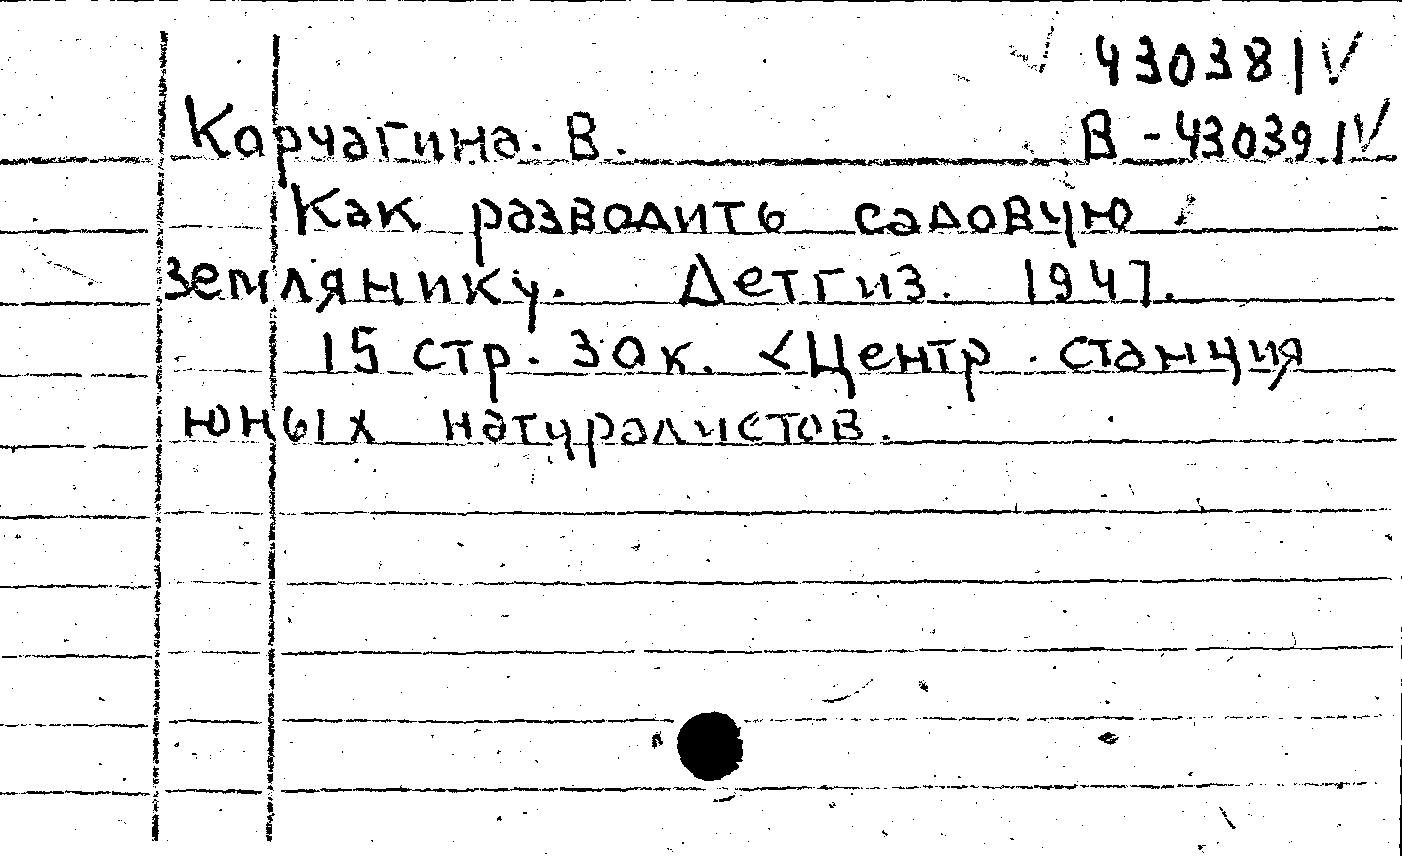 43038 | V
Карчагина. В.
В - 43039 | V
Как разводить садовую
землянику. Детгиз. 1947.
15 стр. 30 к. <Центр. станция
юных натуралистов.